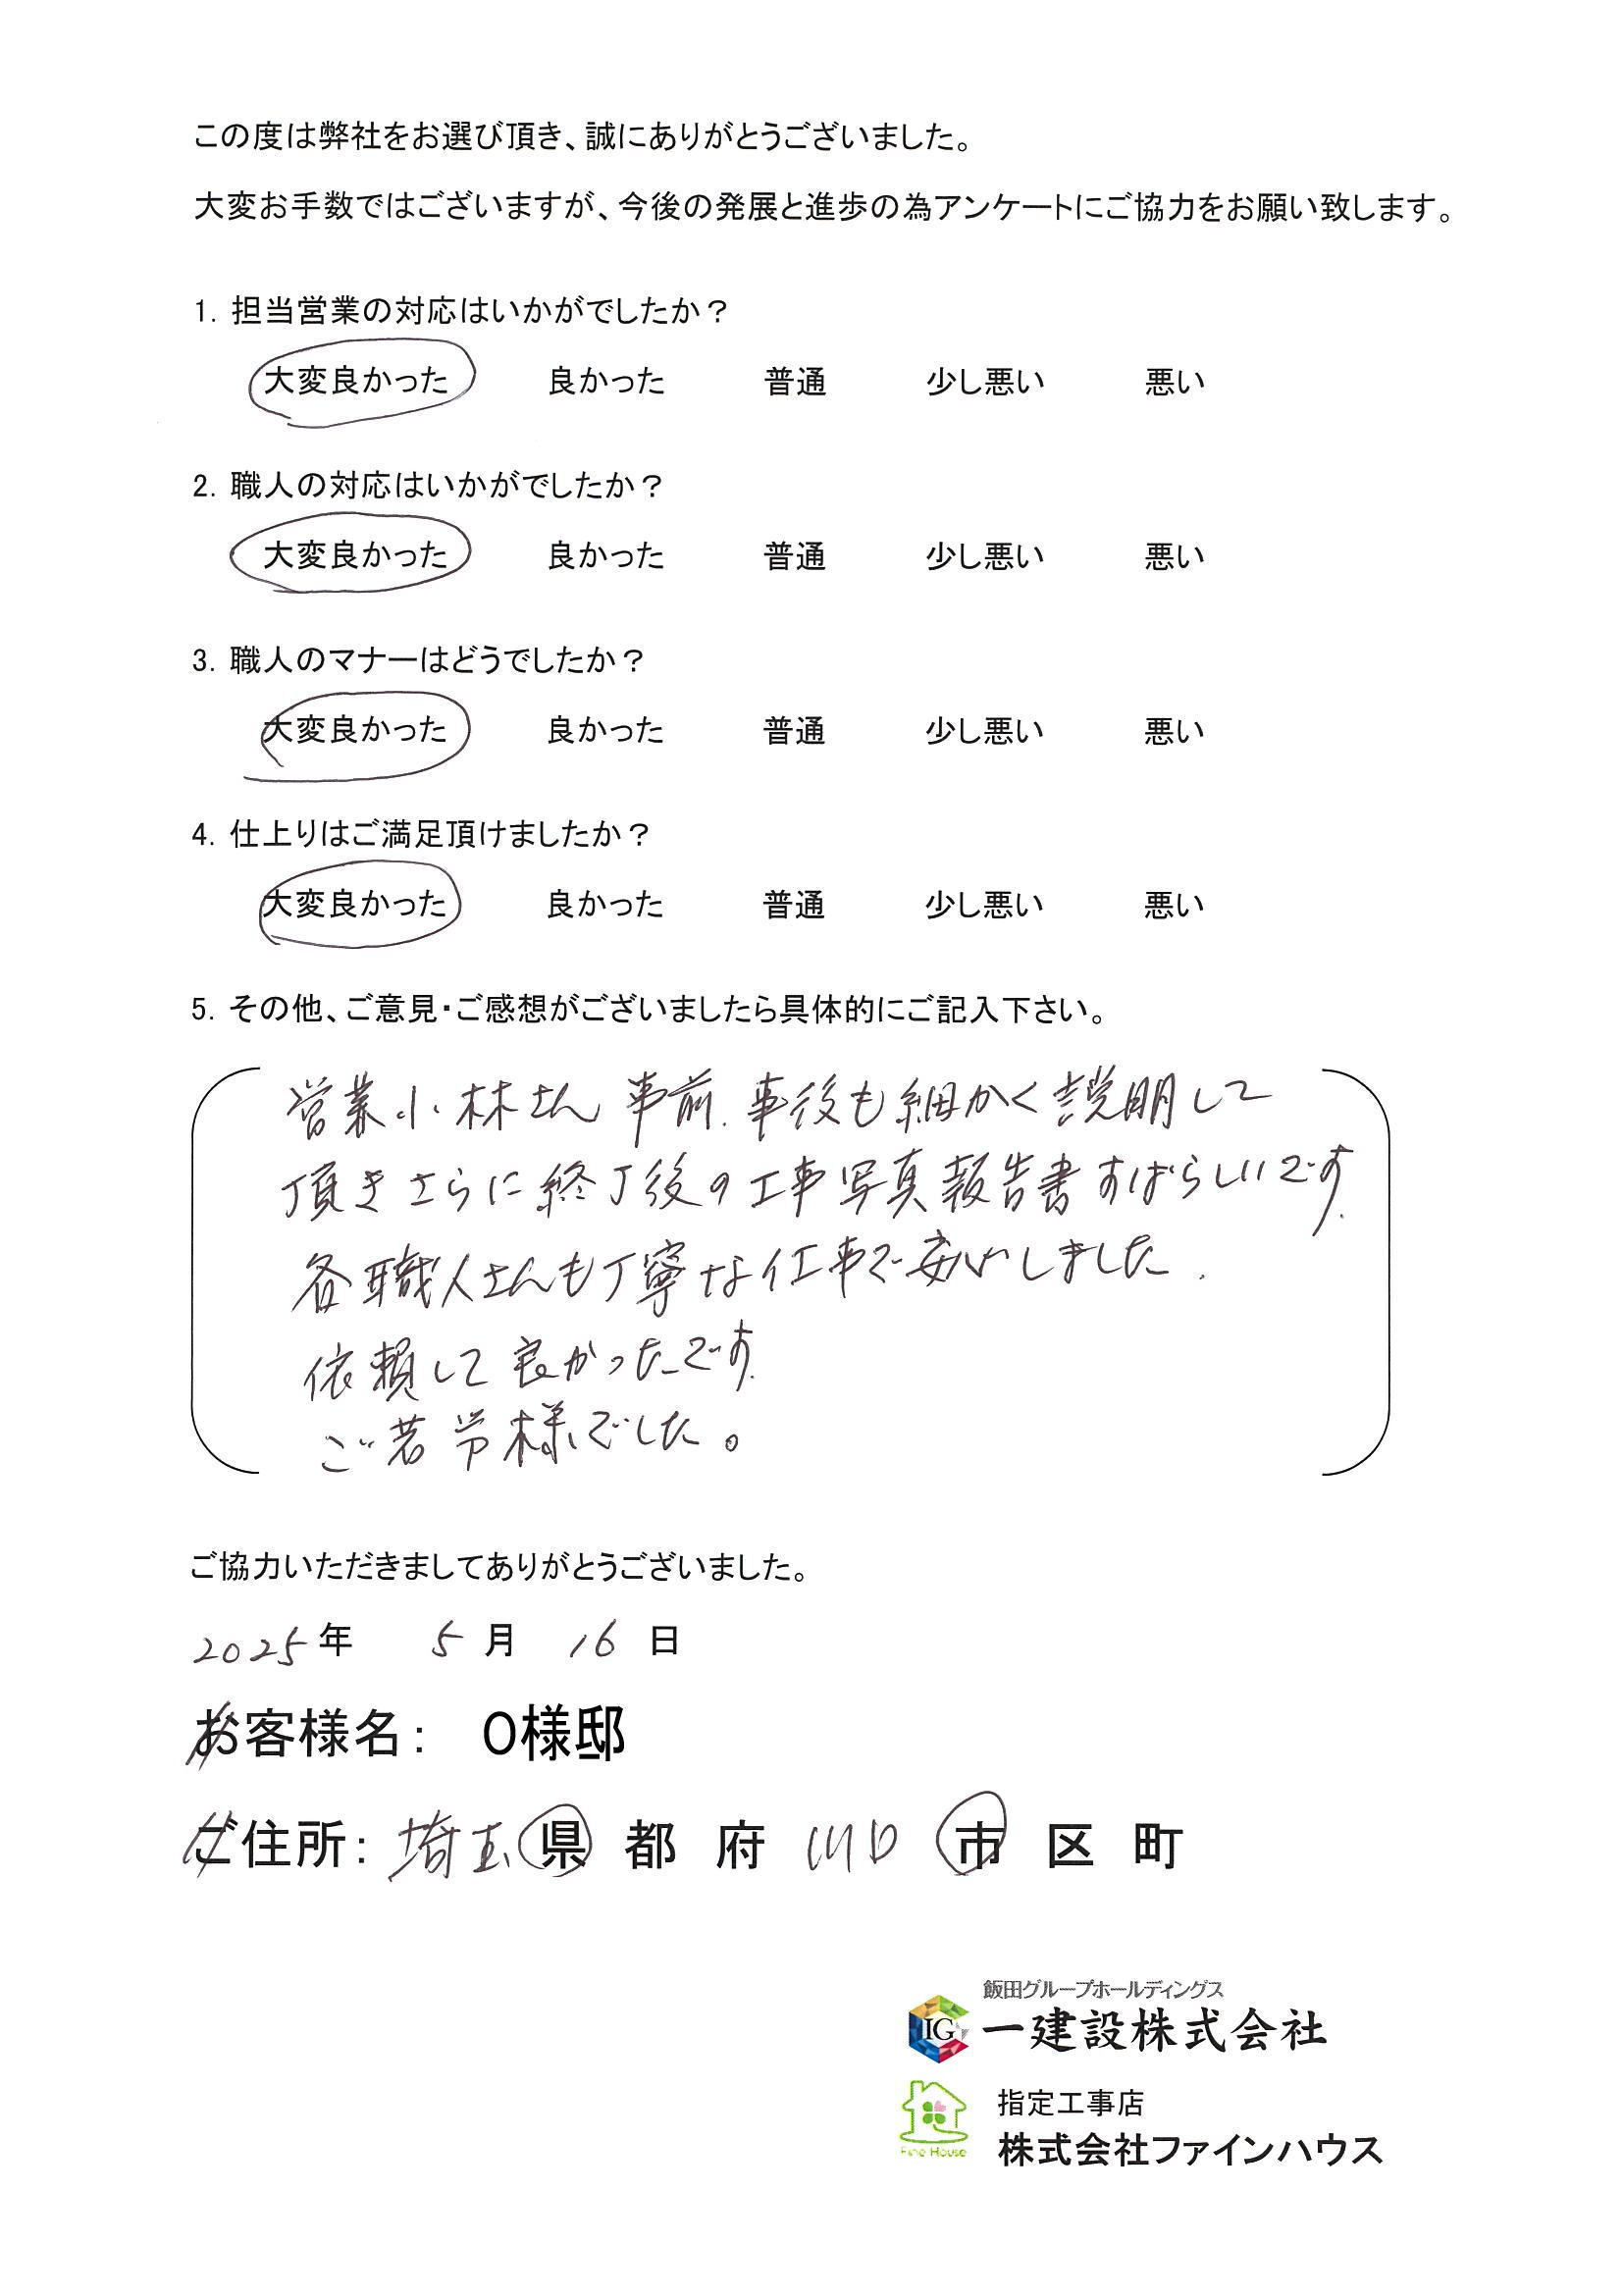 この度は弊社をお選び頂き、誠にありがとうございました。
大変お手数ではございますが、今後の発展と進歩の為アンケートにご協力をお願い致します。
1. 担当営業の対応はいかがでしたか？
大変良かった 良かった 普通 少し悪い 悪い
2. 職人の対応はいかがでしたか？
大変良かった 良かった 普通 少し悪い 悪い
3. 職人のマナーはどうでしたか？
大変良かった 良かった 普通 少し悪い 悪い
4. 仕上りはご満足頂けましたか？
大変良かった 良かった 普通 少し悪い 悪い
5. その他、ご意見・ご感想がございましたら具体的にご記入下さい。
営業小林さん 事前.事後も細かく説明して
頂きさらに終了後の工事写真報告書すばらしいです.
各職人さんも丁寧な仕事で安心しました.
依頼して良かったです.
ご苦労様でした。
ご協力いただきましてありがとうございました。
2025年 5月 16日
お客様名: O様邸
ご住所: 埼玉 県 都 府 川口 市 区 町
飯田グループホールディングス
IG 一建設株式会社
指定工事店
Fine House 株式会社ファインハウス